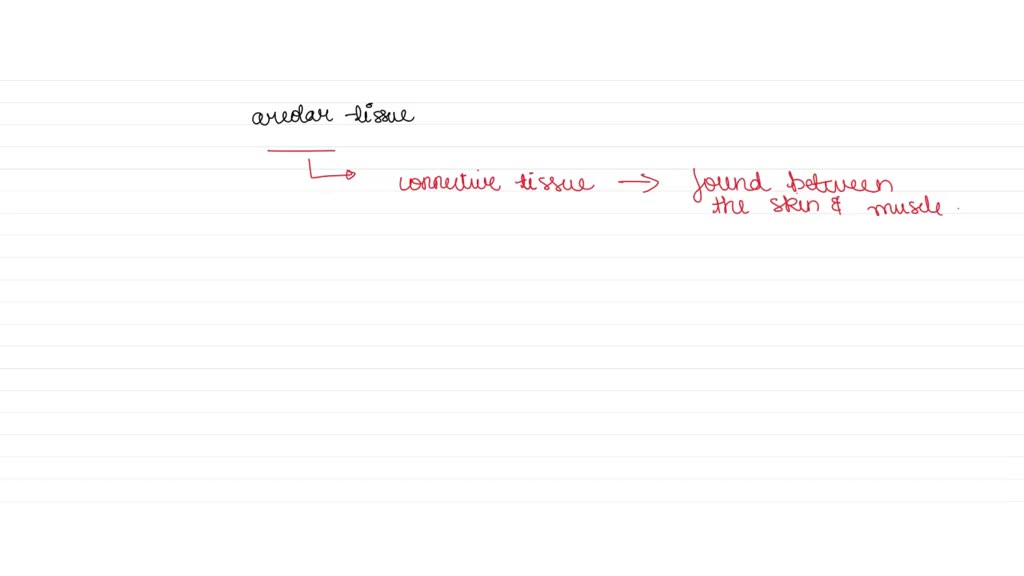 areolar tissue
connective tissue → found between
the skin & muscle.